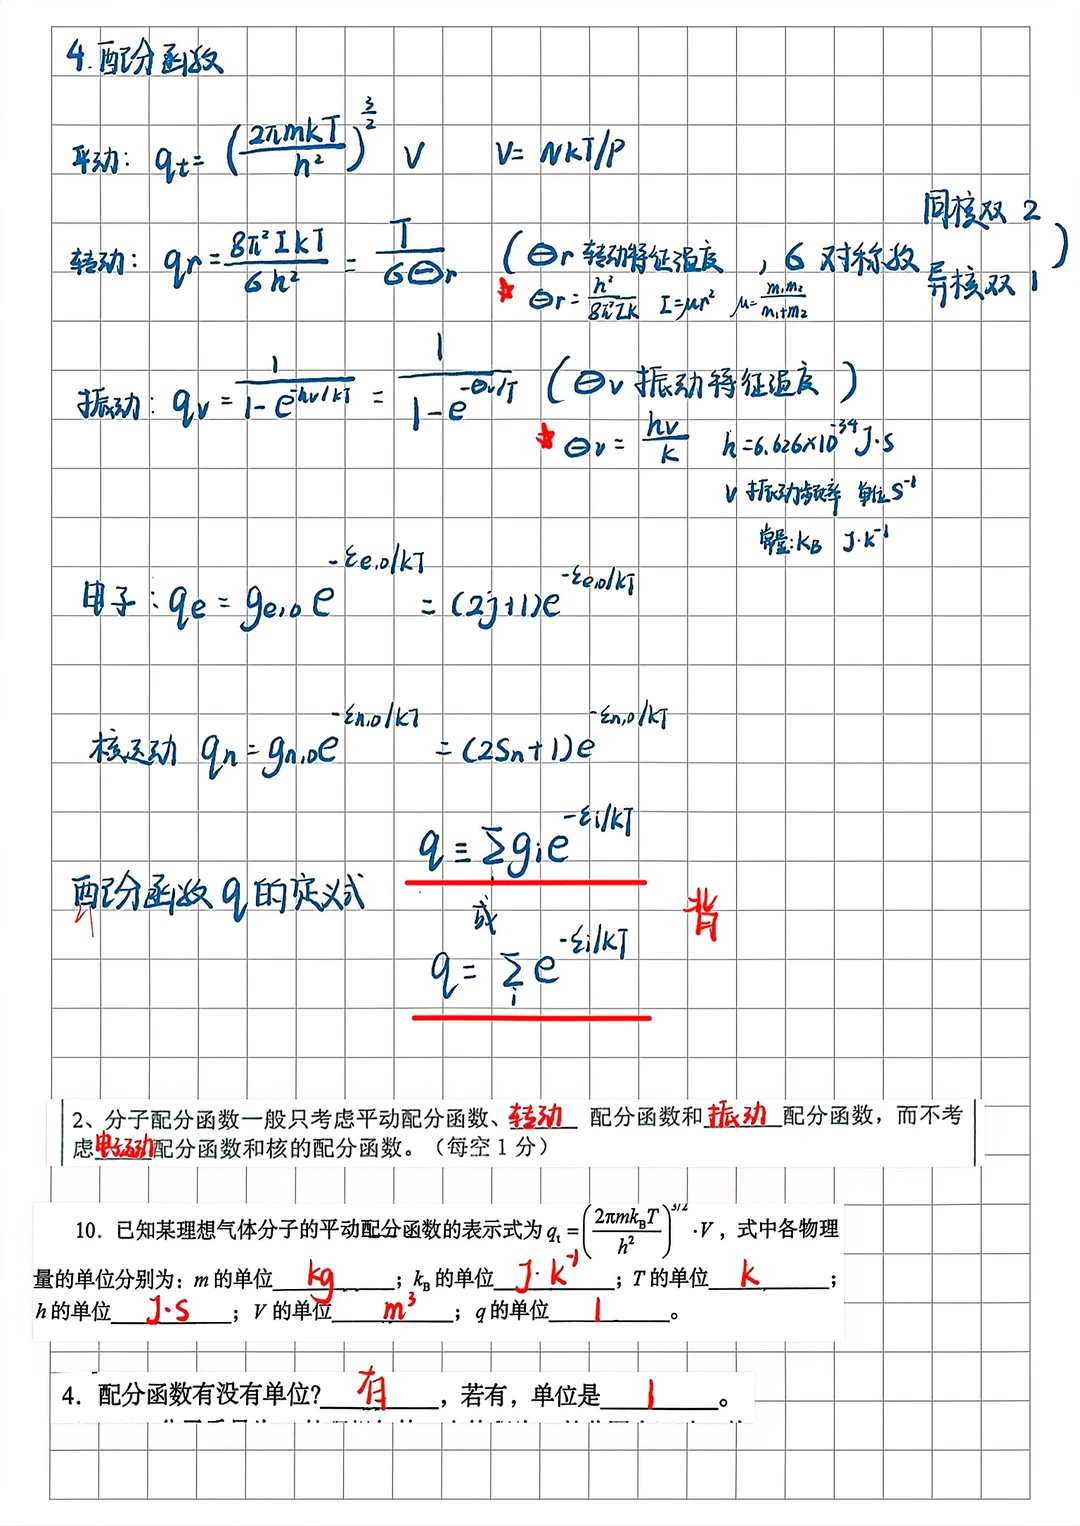 4.配分函数
平动: qt=(2πmkT/h²)^(3/2) V V=NkT/P
转动: qr=8π²IkT/σh²=T/σΘr (Θr转动特征温度, σ对称数 同核双2 异核双1)
★ Θr=h²/8π²Ik I=μr² μ=m₁m₂/m₁+m₂
振动: qv=1/1-e^(-hν/kT)=1/1-e^(-Θv/T) (Θv振动特征温度)
★ Θv=hν/k h=6.626×10⁻³⁴J·s
ν振动频率 单位s⁻¹
常量:kB J·k⁻¹
电子: qe=ge,0 e^(-εe,0/kT)=(2j+1)e^(-εe,0/kT)
核运动 qn=gn,0e^(-εn,0/kT)=(2Sn+1)e^(-εn,0/kT)
q≡Σgie^(-εi/kT)
配分函数q的定义式
或 背
q=Σe^(-εi/kT)
i
2、分子配分函数一般只考虑平动配分函数、转动 配分函数和振动配分函数，而不考
虑电子运动配分函数和核的配分函数。（每空1分）
10. 已知某理想气体分子的平动配分函数的表示式为 qt=(2πmkBT/h²)^(3/2)·V，式中各物理
量的单位分别为：m 的单位 kg ；kB 的单位 J·k⁻¹ ；T 的单位 k ；
h 的单位 J·s ；V 的单位 m³ ；q 的单位 1 。
4. 配分函数有没有单位? 有 ，若有，单位是 1 。